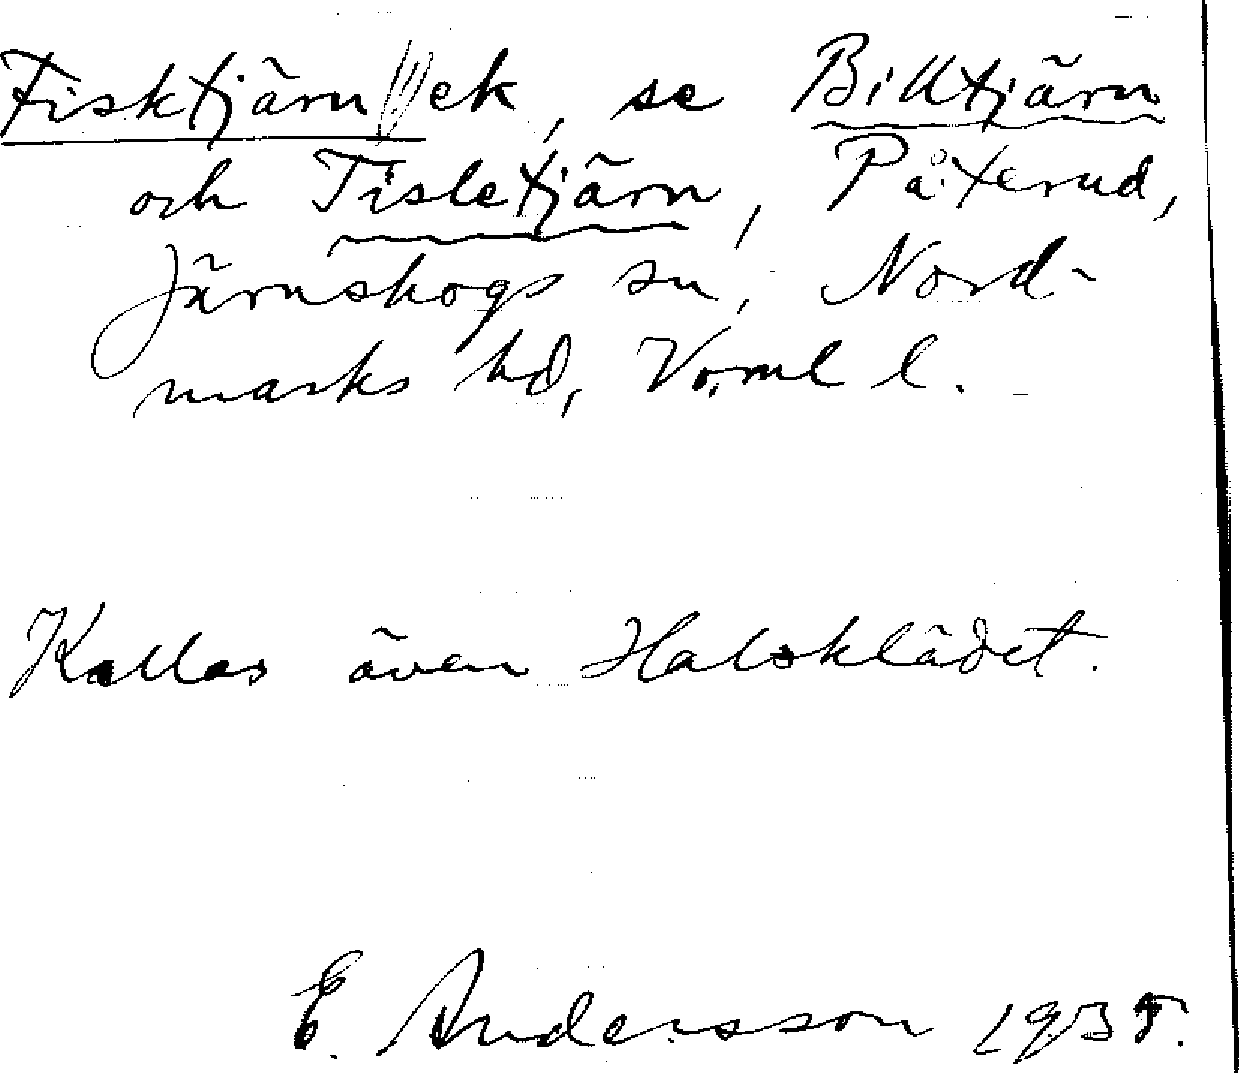 Fisktjärn ek, se Billtjärn
och Tisletjärn, Påterud,
Järnskogs sn, Nord-
marks hd, Värml l.
Kallas även Halsklädet.
E. Andersson 1935.